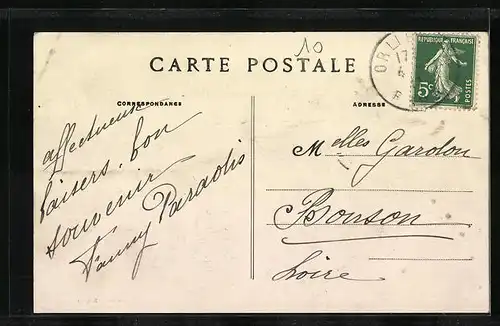 10
CARTE POSTALE
CORRESPONDANCE
ADRESSE
REPUBLIQUE FRANÇAISE
5c
POSTES
17
affectueux
baisers, bon
souvenir
Fanny Paradis
Melles Garolon
Bonson
Loire